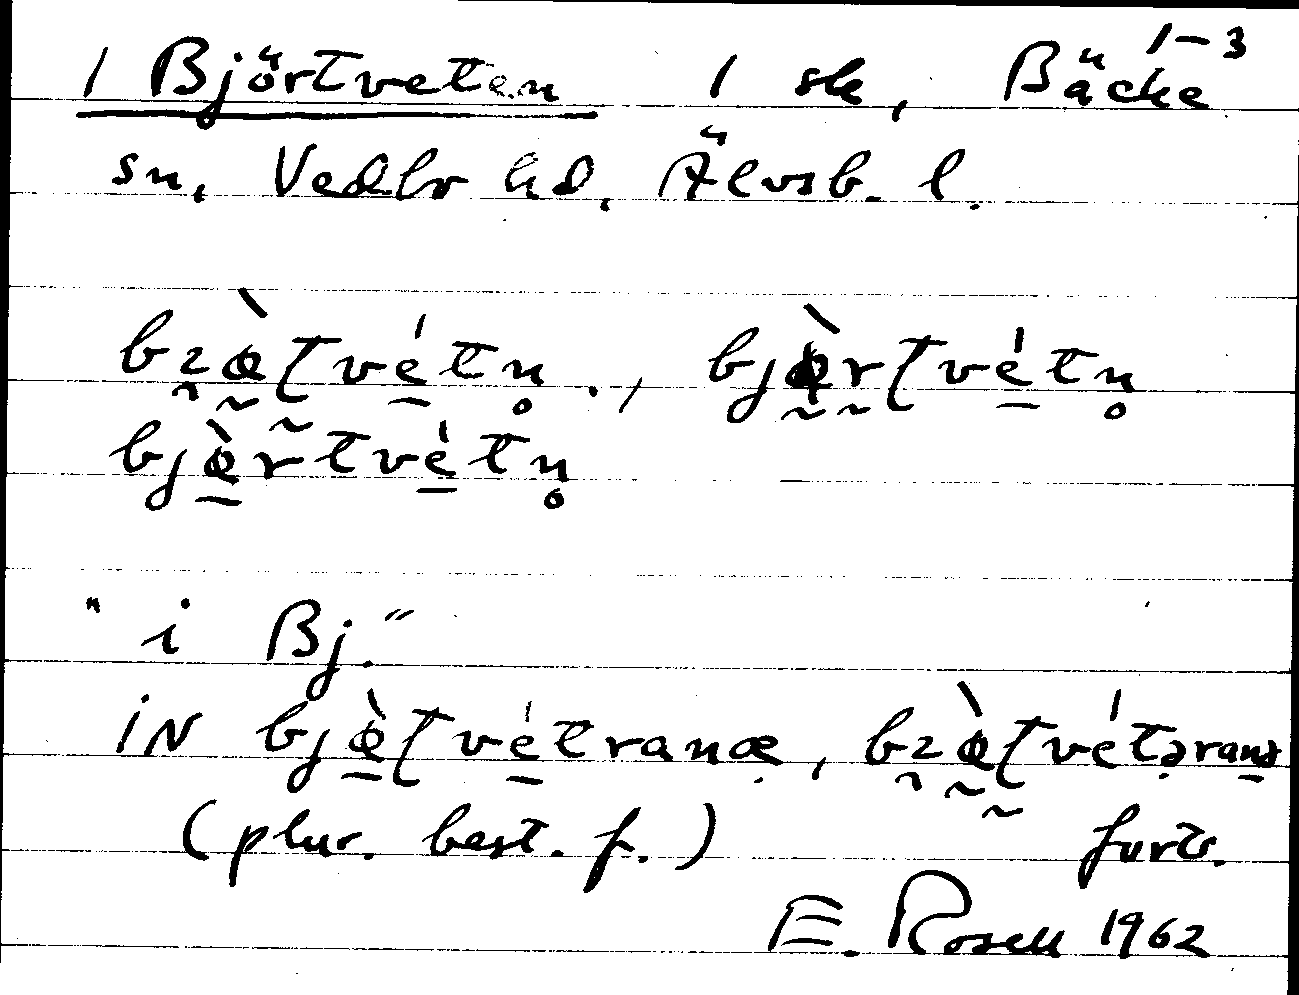 1 Björtveten 1 sk, Bäcke 1-3
sn, Vedbo hd, Älvsb. l.
bɀæ̀ʈvét̲n̥., bjæ̀rʈvét̲n̥
bjæ̀rtvét̲n̥
"i Bj."
iN bjæ̀ʈvétranæ, bɀæ̀ʈvétəranə
(plur. best. f.) forts.
E. Rosell 1962